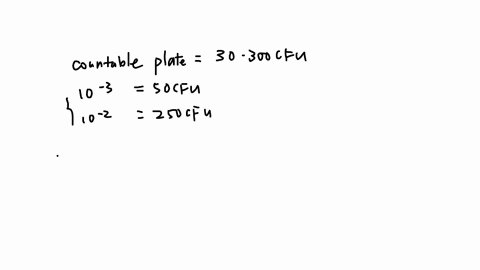 countable plate = 30-300 CFU
10⁻³ = 50 CFU
10⁻² = 250 CFU